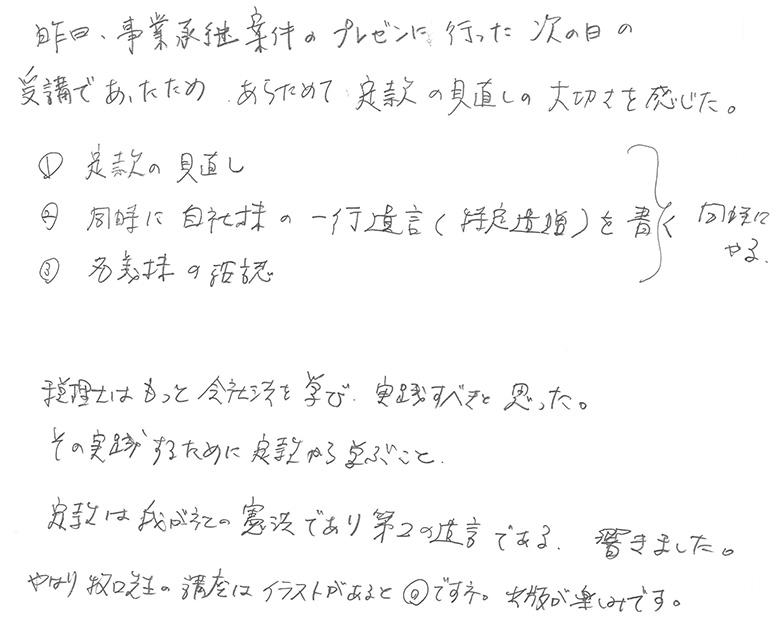 昨日、事業承継案件のプレゼンに行った次の日の
受講であったため あらためて定款の見直しの大切さを感じた。
① 定款の見直し
② 同時に自社株の一行遺言(特定遺贈)を書く
③ 名義株の確認
同時に
やる.
税理士はもっと会社法を学び、実践すべきと思った。
その実践するために定款から学ぶこと.
定款は我が社の憲法であり第2の遺言である. 響きました。
やはり牧口先生の講座はイラストがあると◎ですネ。出版が楽しみです。